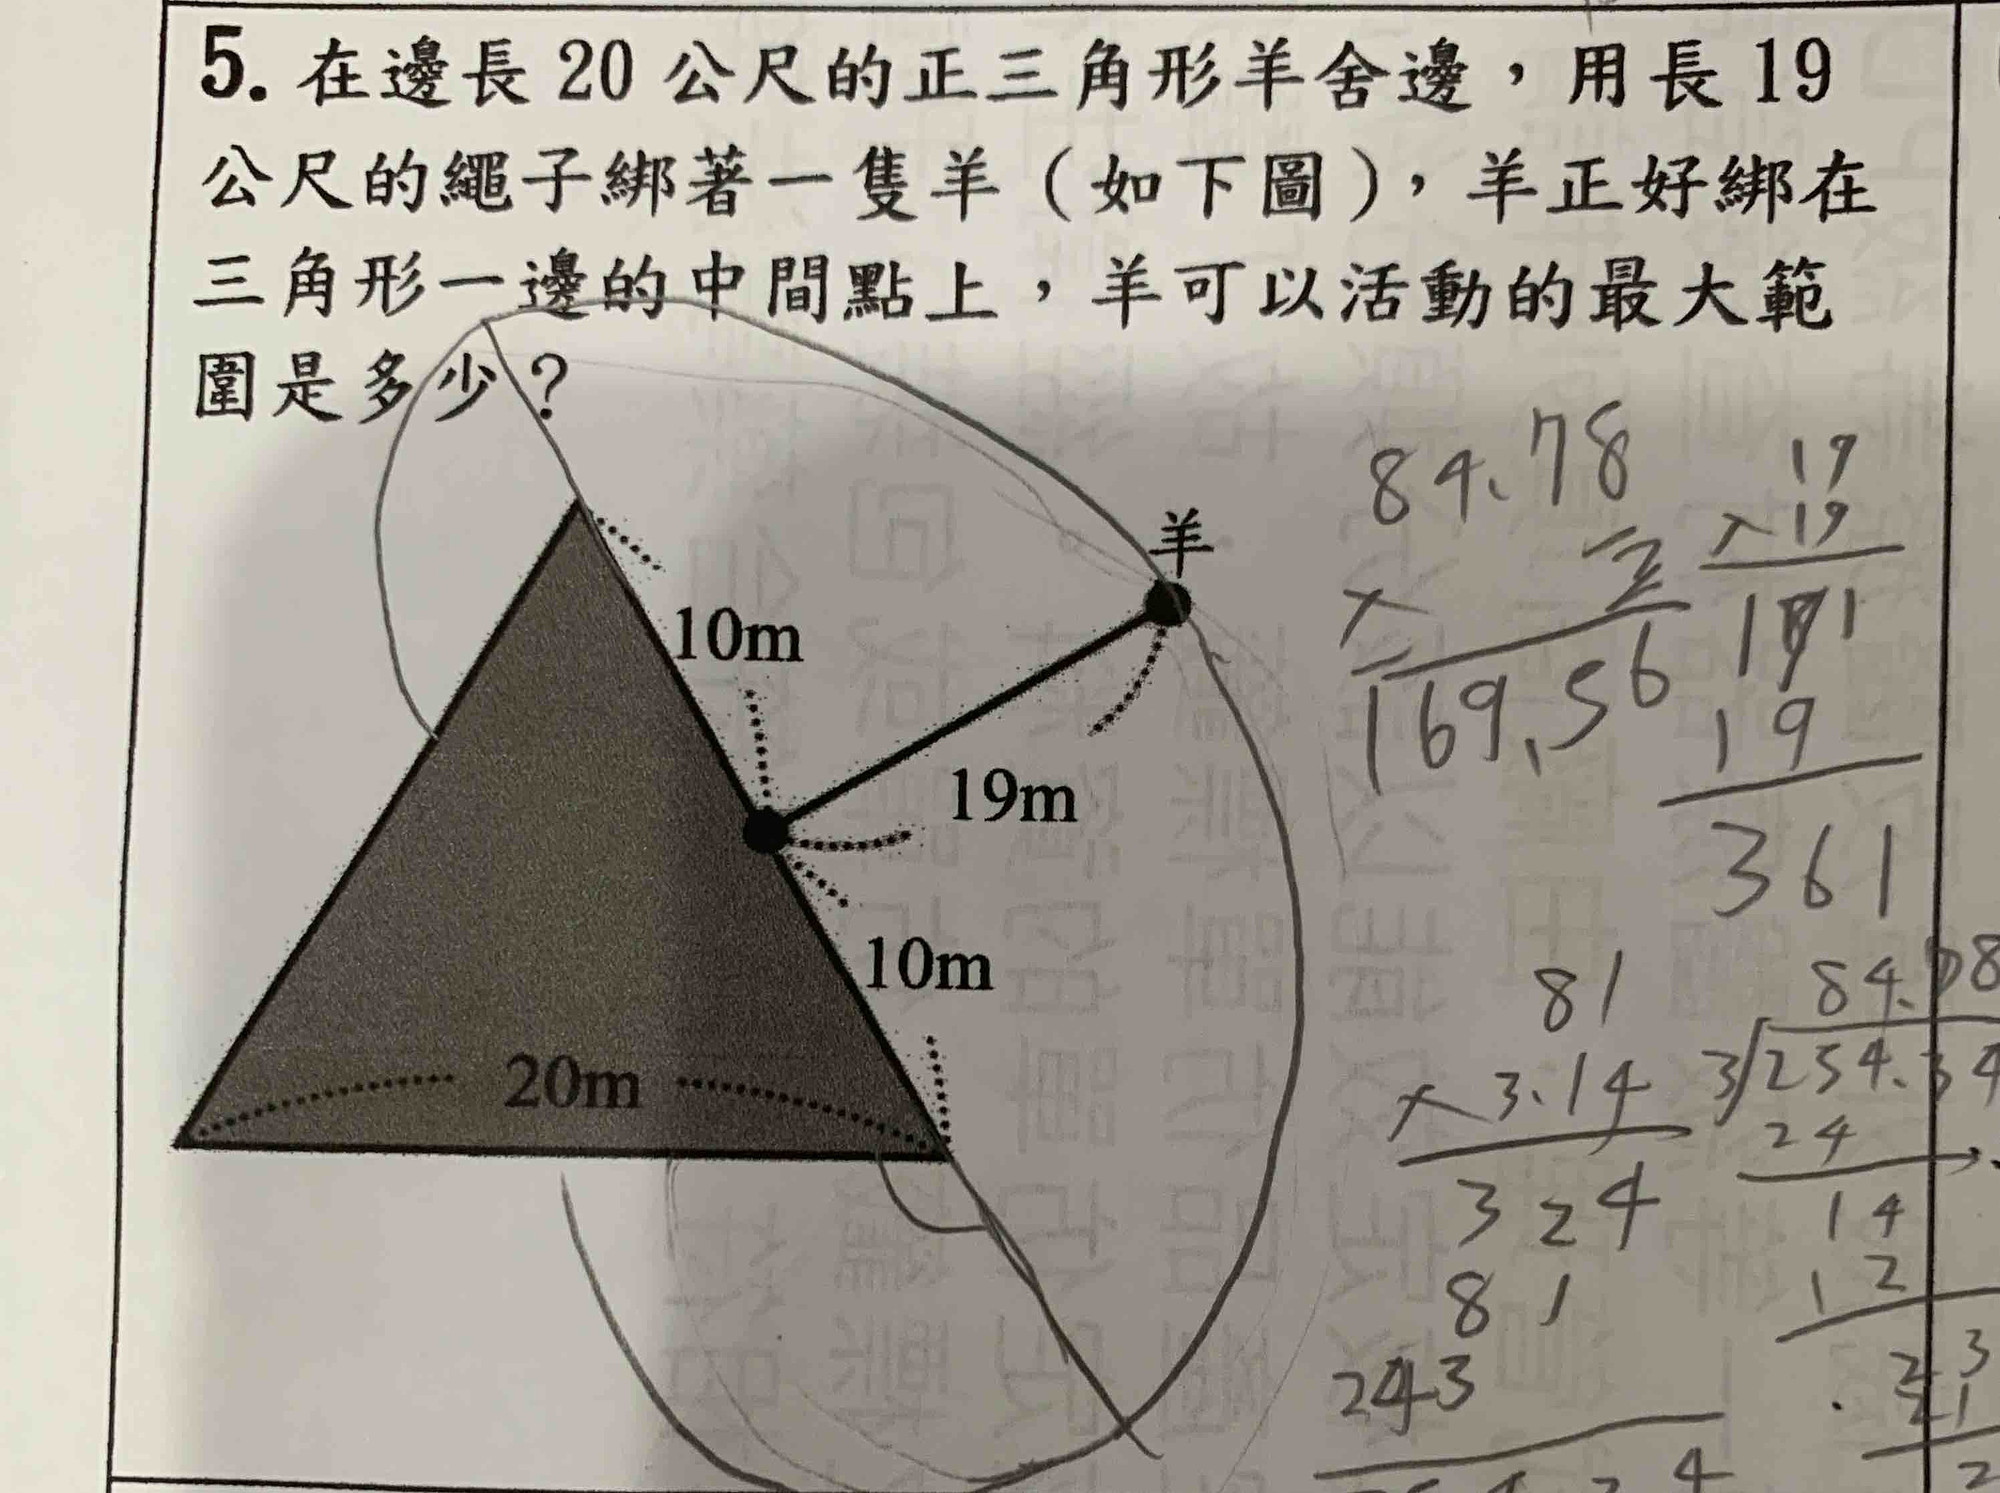 5. 在邊長 20 公尺的正三角形羊舍邊，用長 19
公尺的繩子綁著一隻羊（如下圖），羊正好綁在
三角形一邊的中間點上，羊可以活動的最大範
圍是多少？
羊
10m
19m
10m
20m
84.78
× 2
169.56
19
× 19
171
19
361
81
× 3.14
324
81
243
84.78
3 254.34
24
14
12
23
21
2